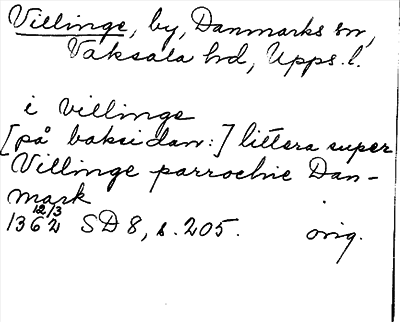 Villinge, by, Danmarks sn,
Vaksala hd, Upps. l.
i villinge
[på baksidan:] littera super
Villinge parrochie Dan-
mark
1362 12/3 SD 8, s. 205. orig.